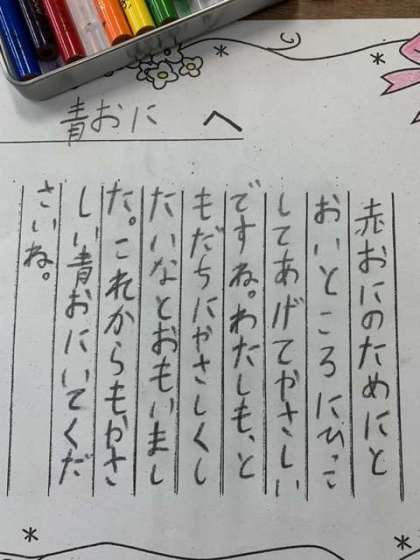 青おに へ
赤おにのためにと
おいところにひっこ
してあげてやさしい
ですね。わたしも、と
もだちにやさしくし
たいなとおもいまし
た。これからもやさ
しい青おにいてくだ
さいね。